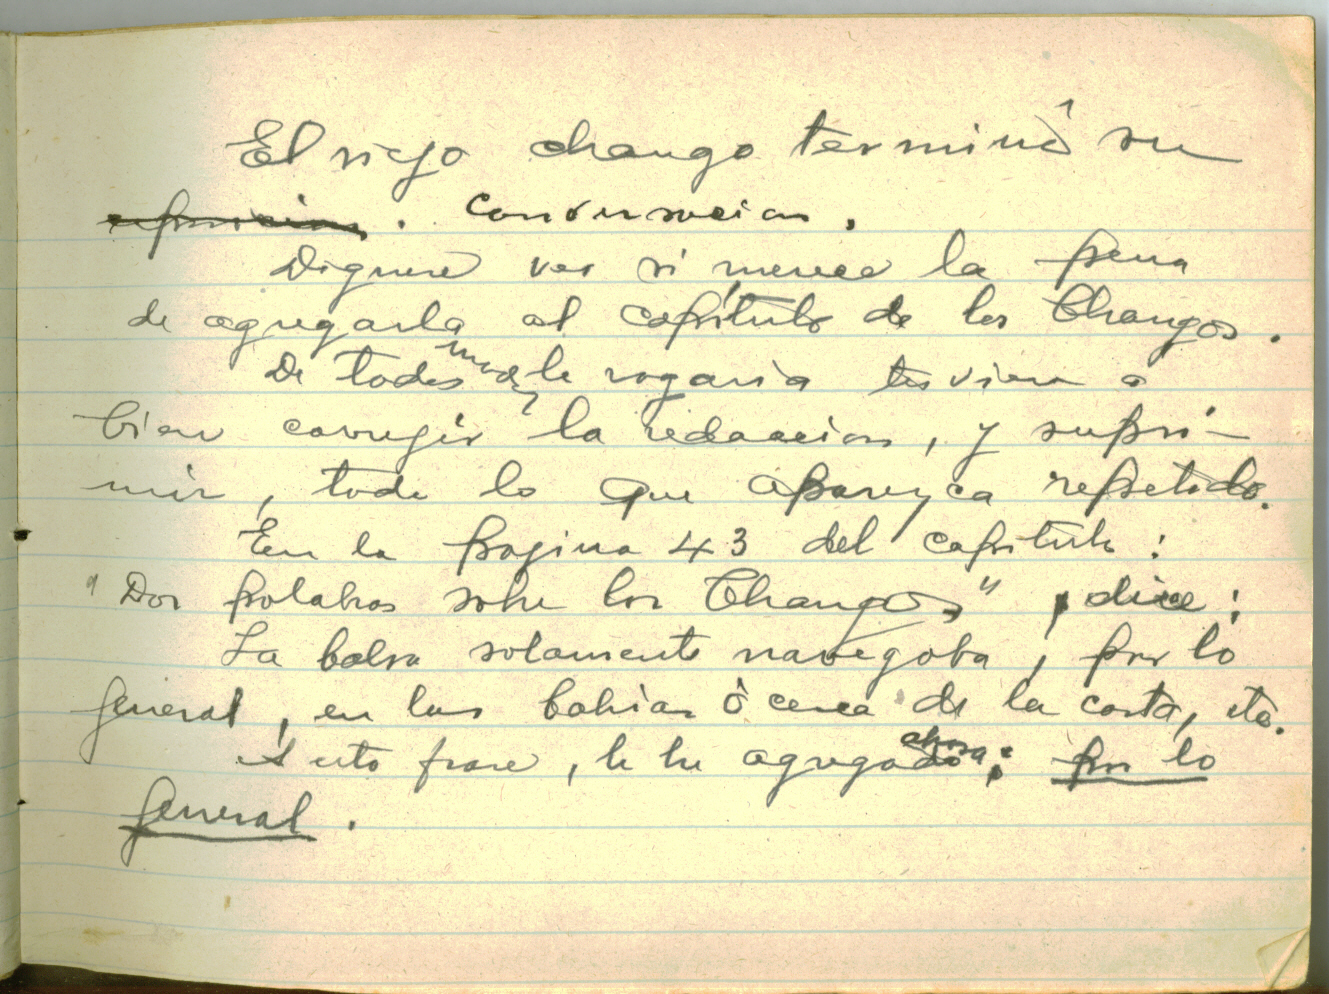 El viejo chango terminó su
. conversacion.
Dignese ver si merece la pena
de agregarla al capítulo de los Changos.
De todos modos le rogaria tuviera a
bien corregir la redaccion, y supri-
mir, todo lo que aparezca repetido.
En la pagina 43 del capitulo:
"Dos palabras sobre los Changos", dice:
La balsa solamente navegaba, por lo
general, en las bahias ò cerca de la costa, etc.
A esta frase, le he agregado ahora: por lo
general.